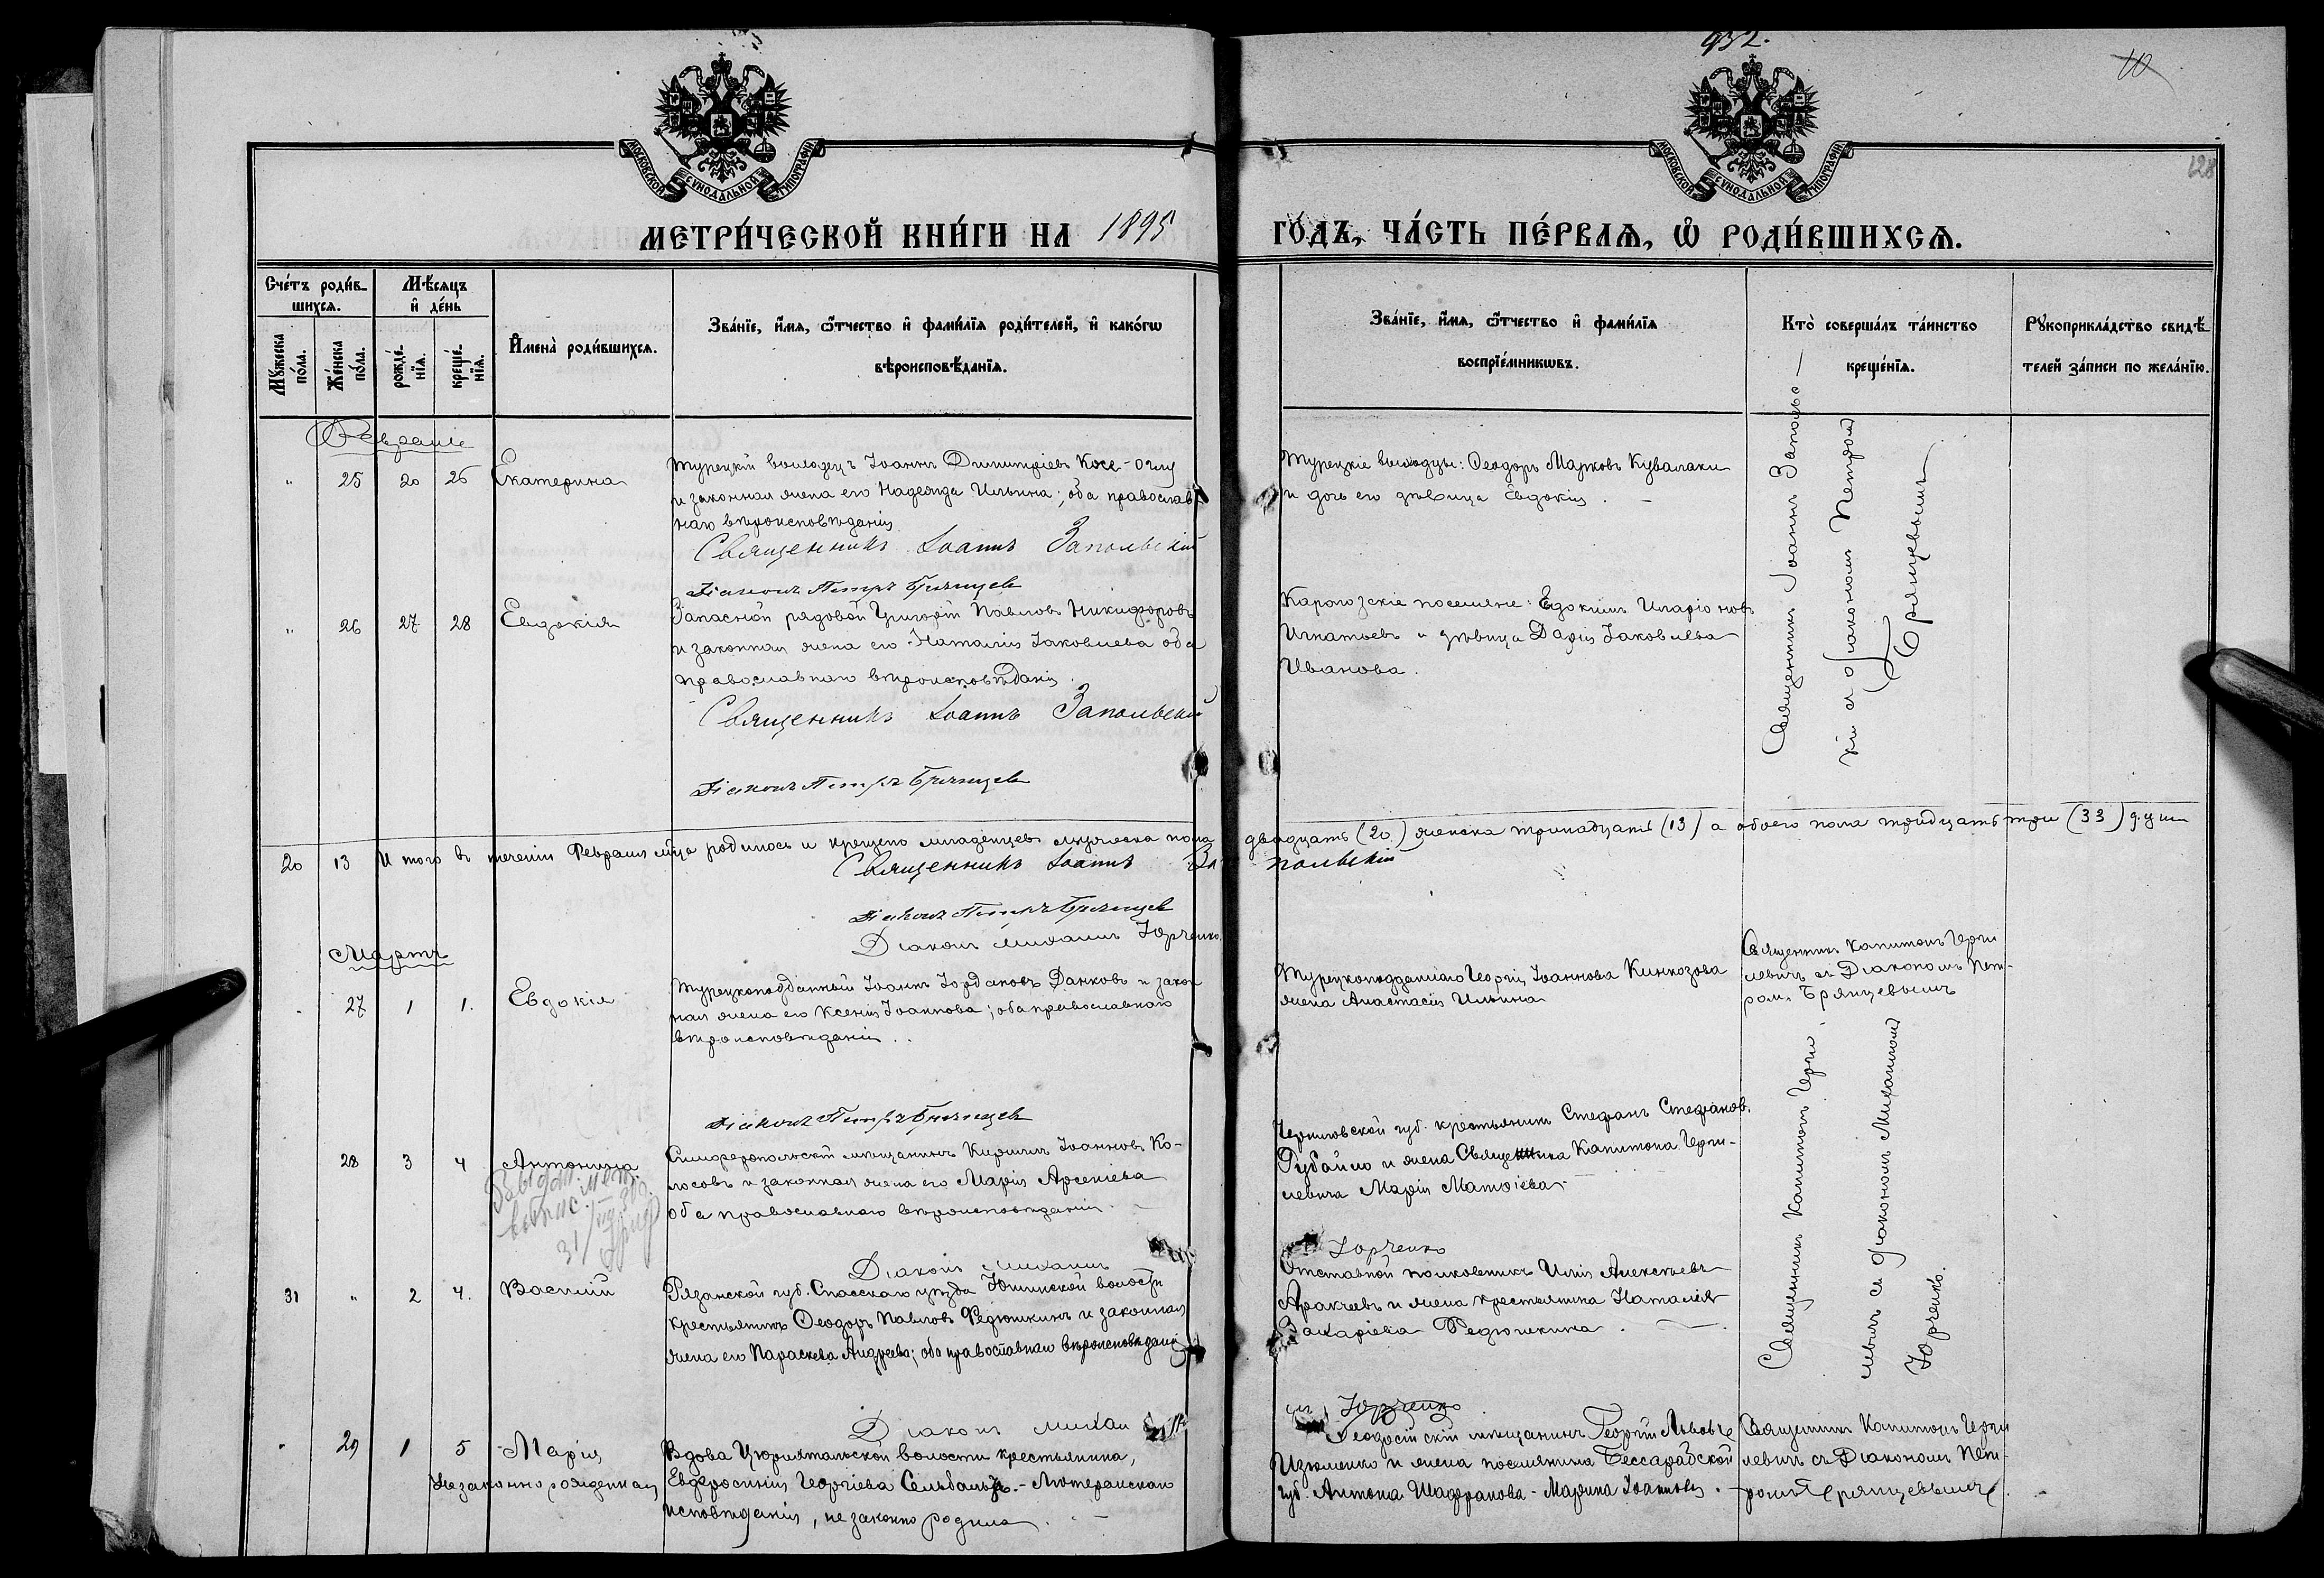 932.
10
128
МОСКОВСКОЙ СѴНОДАЛЬНОЙ ТИПОГРАФІИ
МОСКОВСКОЙ СѴНОДАЛЬНОЙ ТИПОГРАФІИ
МЕТРИ́ЧЕСКОЙ КНИ́ГИ НА 1895 ГО́ДЪ, ЧА́СТЬ ПЕ́РВАѦ, Ѡ РОДИ́ВШИХСѦ.
Сче́тъ роди́в-
шихсѧ.
Мꙋ́жеска по́ла.
Же́нска по́ла.
Мѣ́сѧцъ
и де́нь
рожде́-
нїѧ.
креще́-
нїѧ.
Имена̀ роди́вшихсѧ.
Зва́нїе, и́мѧ, ѻ́тчество и фами́лїѧ роди́телей, и како́гѡ
вѣроисповѣ́данїѧ.
Зва́нїе, и́мѧ, ѻ́тчество и фами́лїѧ
воспрїе́мникѡвъ.
Кто̀ соверша́лъ та́инство
креще́нїѧ.
Рꙋкоприкла́дство свидѣ́-
телей за́писи по жела́нїю.
" 25 20 26 Екатерина
Турецкій выходецъ Іоаннъ Димитріевъ Косе-оглу
и законная жена его Надежда Ильина; оба православ
наго вѣроисповѣданія
Священникъ Іоаннъ Запольскій
Діаконъ Петръ Брянцев
Турецкіе выходцы: Ѳеодоръ Марковъ Кувалаки
и дочь его дѣвица Евдокія. –
Священникъ Іоаннъ Запольс–
кій съ діакономъ Петромъ
Брянцевымъ
" 26 27 28 Евдокія
Запасной рядовой Григорій Павловъ Никифоровъ
и законная жена его Наталія Іаковлева оба
православнаго вѣроисповѣданія.
Священникъ Іоаннъ Запольскій
Діаконъ Петръ Брянцев
Карагозскіе поселяне: Евдокимъ Иларіоновъ
Игнатьевъ и дѣвица Дарія Іаковлева
Иванова.
20 13 Итого въ теченіи Февраля м-ца родилось и крещено младенцевъ мужеска пола двадцать (20) женска тринадцать (13) а обоего пола тридцать три (33) души
Священникъ Іоаннъ Запольскій
Діаконъ Петръ Брянцев
Діаконъ Михаилъ Юрченко
Мартъ
" 27 1 1. Евдокія
Турецкоподданный Іоаннъ Іордановъ Данковъ и закон
ная жена его Ксенія Іоаннова; оба православнаго
вѣроисповѣданія..
Діаконъ Петръ Брянцев
Турецкоподданнаго Георгія Іоаннова Кинкозова
жена Анастасія Ильина
Священникъ Капитонъ Черги
левичъ съ Діакономъ Пет-
ромъ Брянцевымъ
28 3 4 Антонина
31/
Симферопольскій мѣщанинъ Кириллъ Іоанновъ Ко-
лосовъ и законная жена его Марія Арсеніева
оба православнаго вѣроисповѣданія. –
Діаконъ Михаилъ Юрченко
Черниговской губ. крестьянинъ Стефанъ Стефанов.
Рубайло и жена Священника Капитона Черги-
левича Марія Матѳіева –
Священникъ Капитонъ Черги
левичъ съ Діакономъ Михаиломъ
Юрченко.
31 " 2 4. Василій
Рязанской губ. Спасскаго уѣзда волости
крестьянинъ Ѳеодоръ Павловъ Федюшкинъ и законная
жена его Параскева Андреева; оба православнаго вѣроисповѣданія
Діаконъ Михаилъ Юрченко
Отставной полковникъ Илія Алексѣевъ
Аракчеевъ и жена крестьянина Наталія
Захаріева Федюшкина. –
" 29 1 5 Марія
Незаконнорожденная
Вдова Цюрихтальской волости крестьянина,
Евфросинія Георгіева – Лютеранскаго
исповѣданія, незаконно родила. –
Ѳеодосійскій мѣщанинъ Георгій Львовъ
Изюменко и жена поселянина Бессарабской
губ. Антона Шафранова – Марина Іоаннова. –
Священникъ Капитонъ Черги
левичъ съ Діакономъ Пет-
ромъ Брянцевымъ.